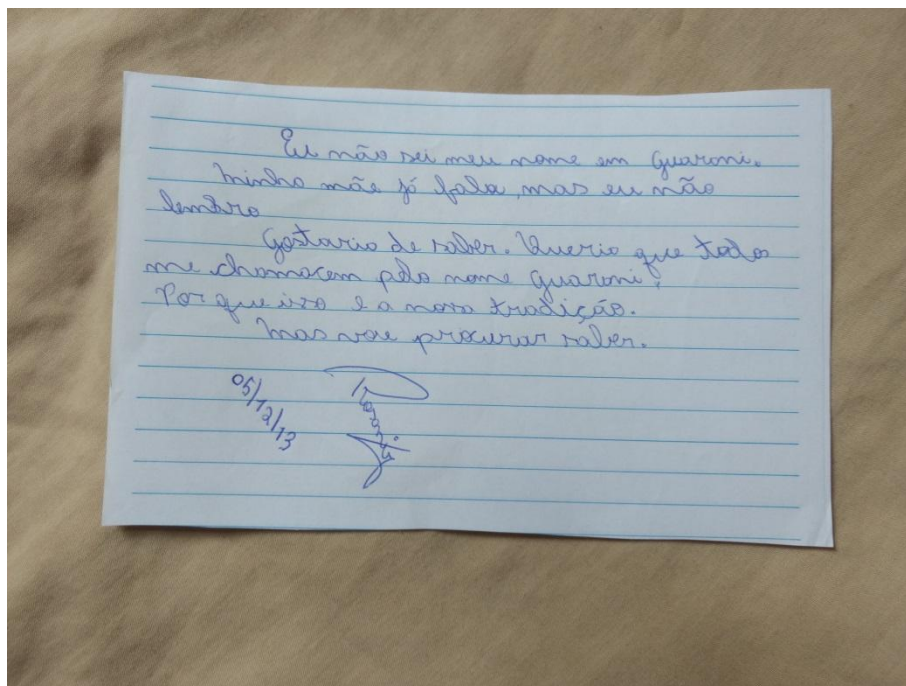 Eu não sei meu nome em guarani.
Minha mãe já fala, mas eu não
lembro
Gostaria de saber. Queria que todos
me chamacem pelo nome guarani,
Por que isso é a nossa tradição.
Mas vou procurar saber.
05/12/13